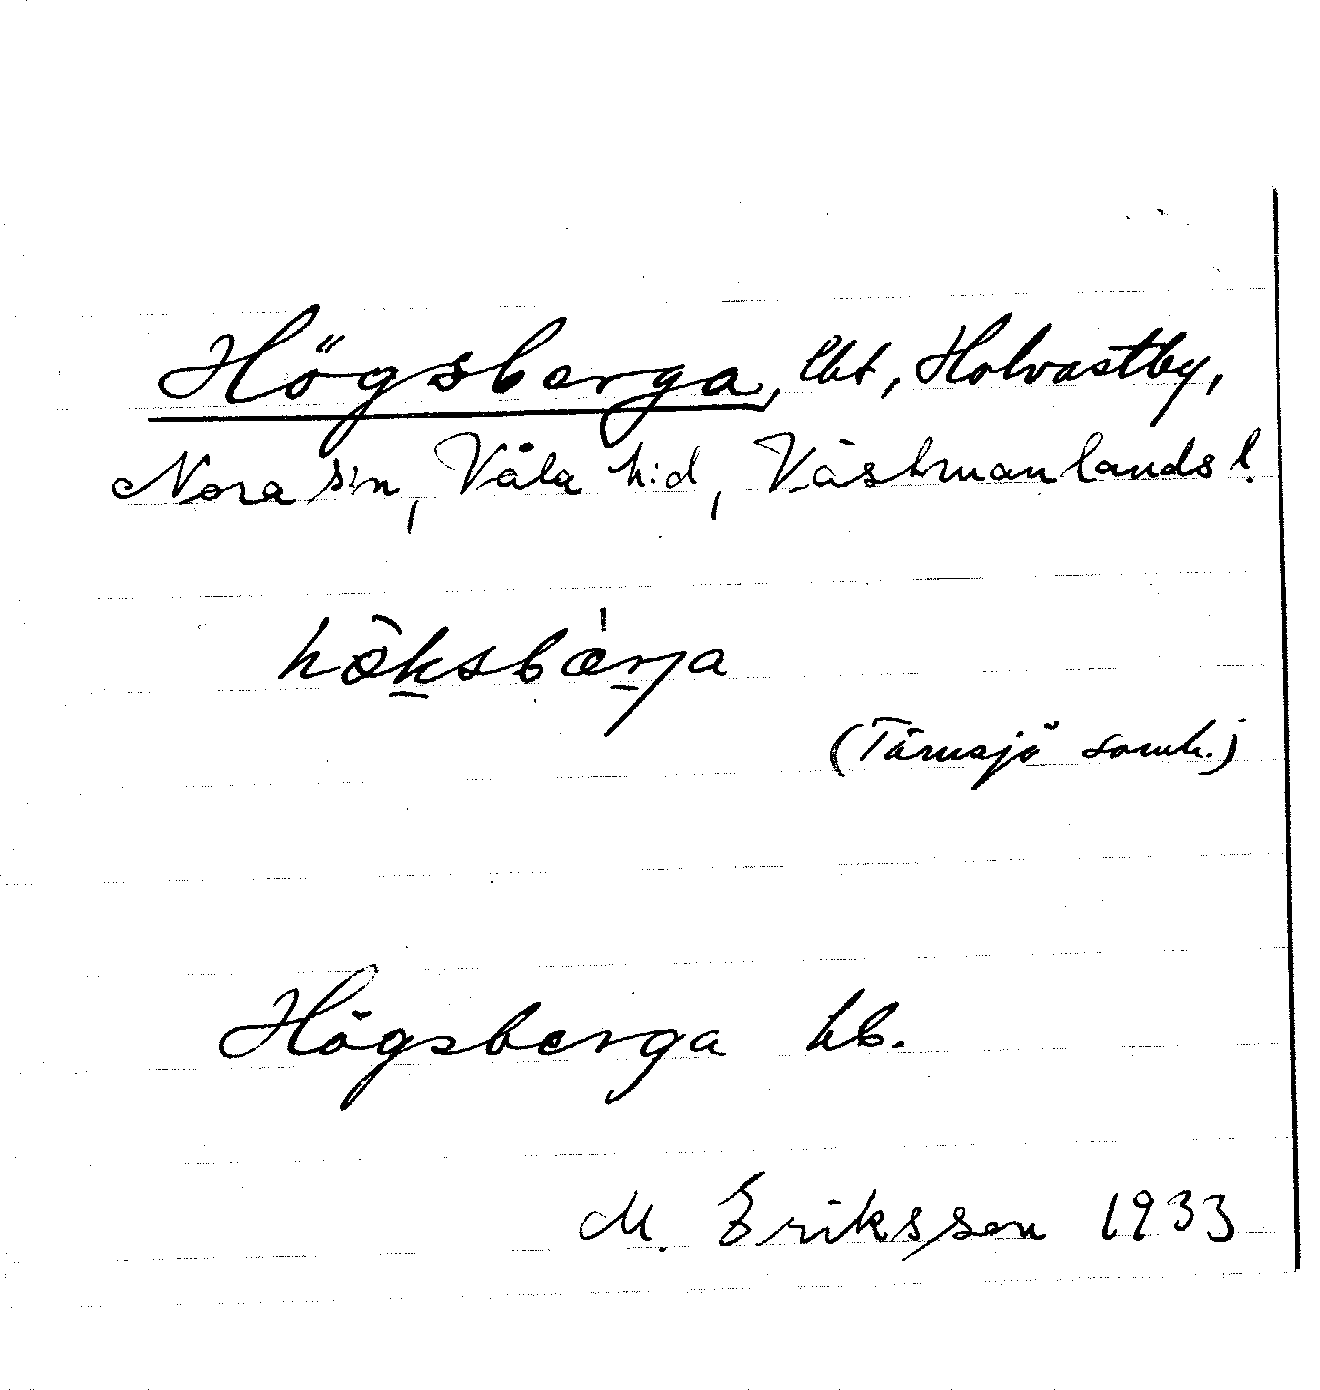 Högsberga, lht, Holvastby,
Nora sn, Våla h:d, Västmanlands l.
hö̀ksbæ̀rja
(Tärnsjö samh.)
Högsberga hb.
M. Eriksson 1933